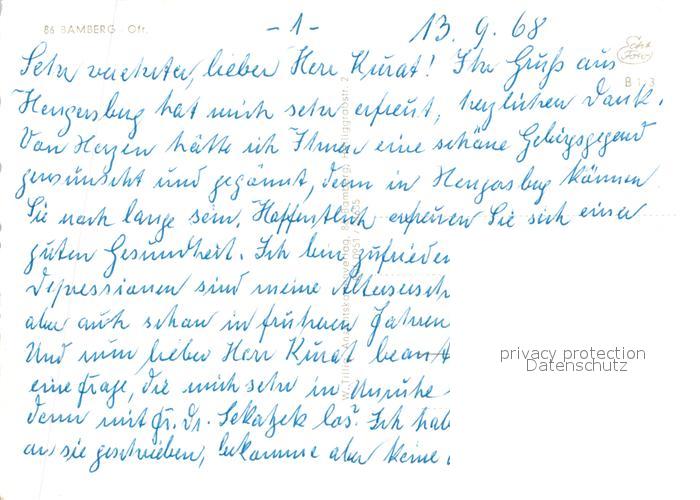 86 BAMBERG - Ofr.
-1- 13. 9. 68
Sehr verehrter, lieber Herr Kurat! Ihr Gruß aus
Hengersberg hat mich sehr erfreut, herzlichen Dank.
Von Herzen hätte ich Ihnen eine schöne Gebirgsgegend
gewünscht und gegönnt, denn in Hengersberg können
Sie noch lange sein. Hoffentlich erfreuen Sie sich einer
guten Gesundheit. Ich bin zufrieden
Depressionen sind meine
aber auch schon in früheren Jahren
Und nun lieber Herr Kurat
eine Frage, die mich sehr in Unruhe
denn mit Fr. Dr. los? Ich hab
an sie geschrieben, bekomme aber keine
privacy protection
Datenschutz